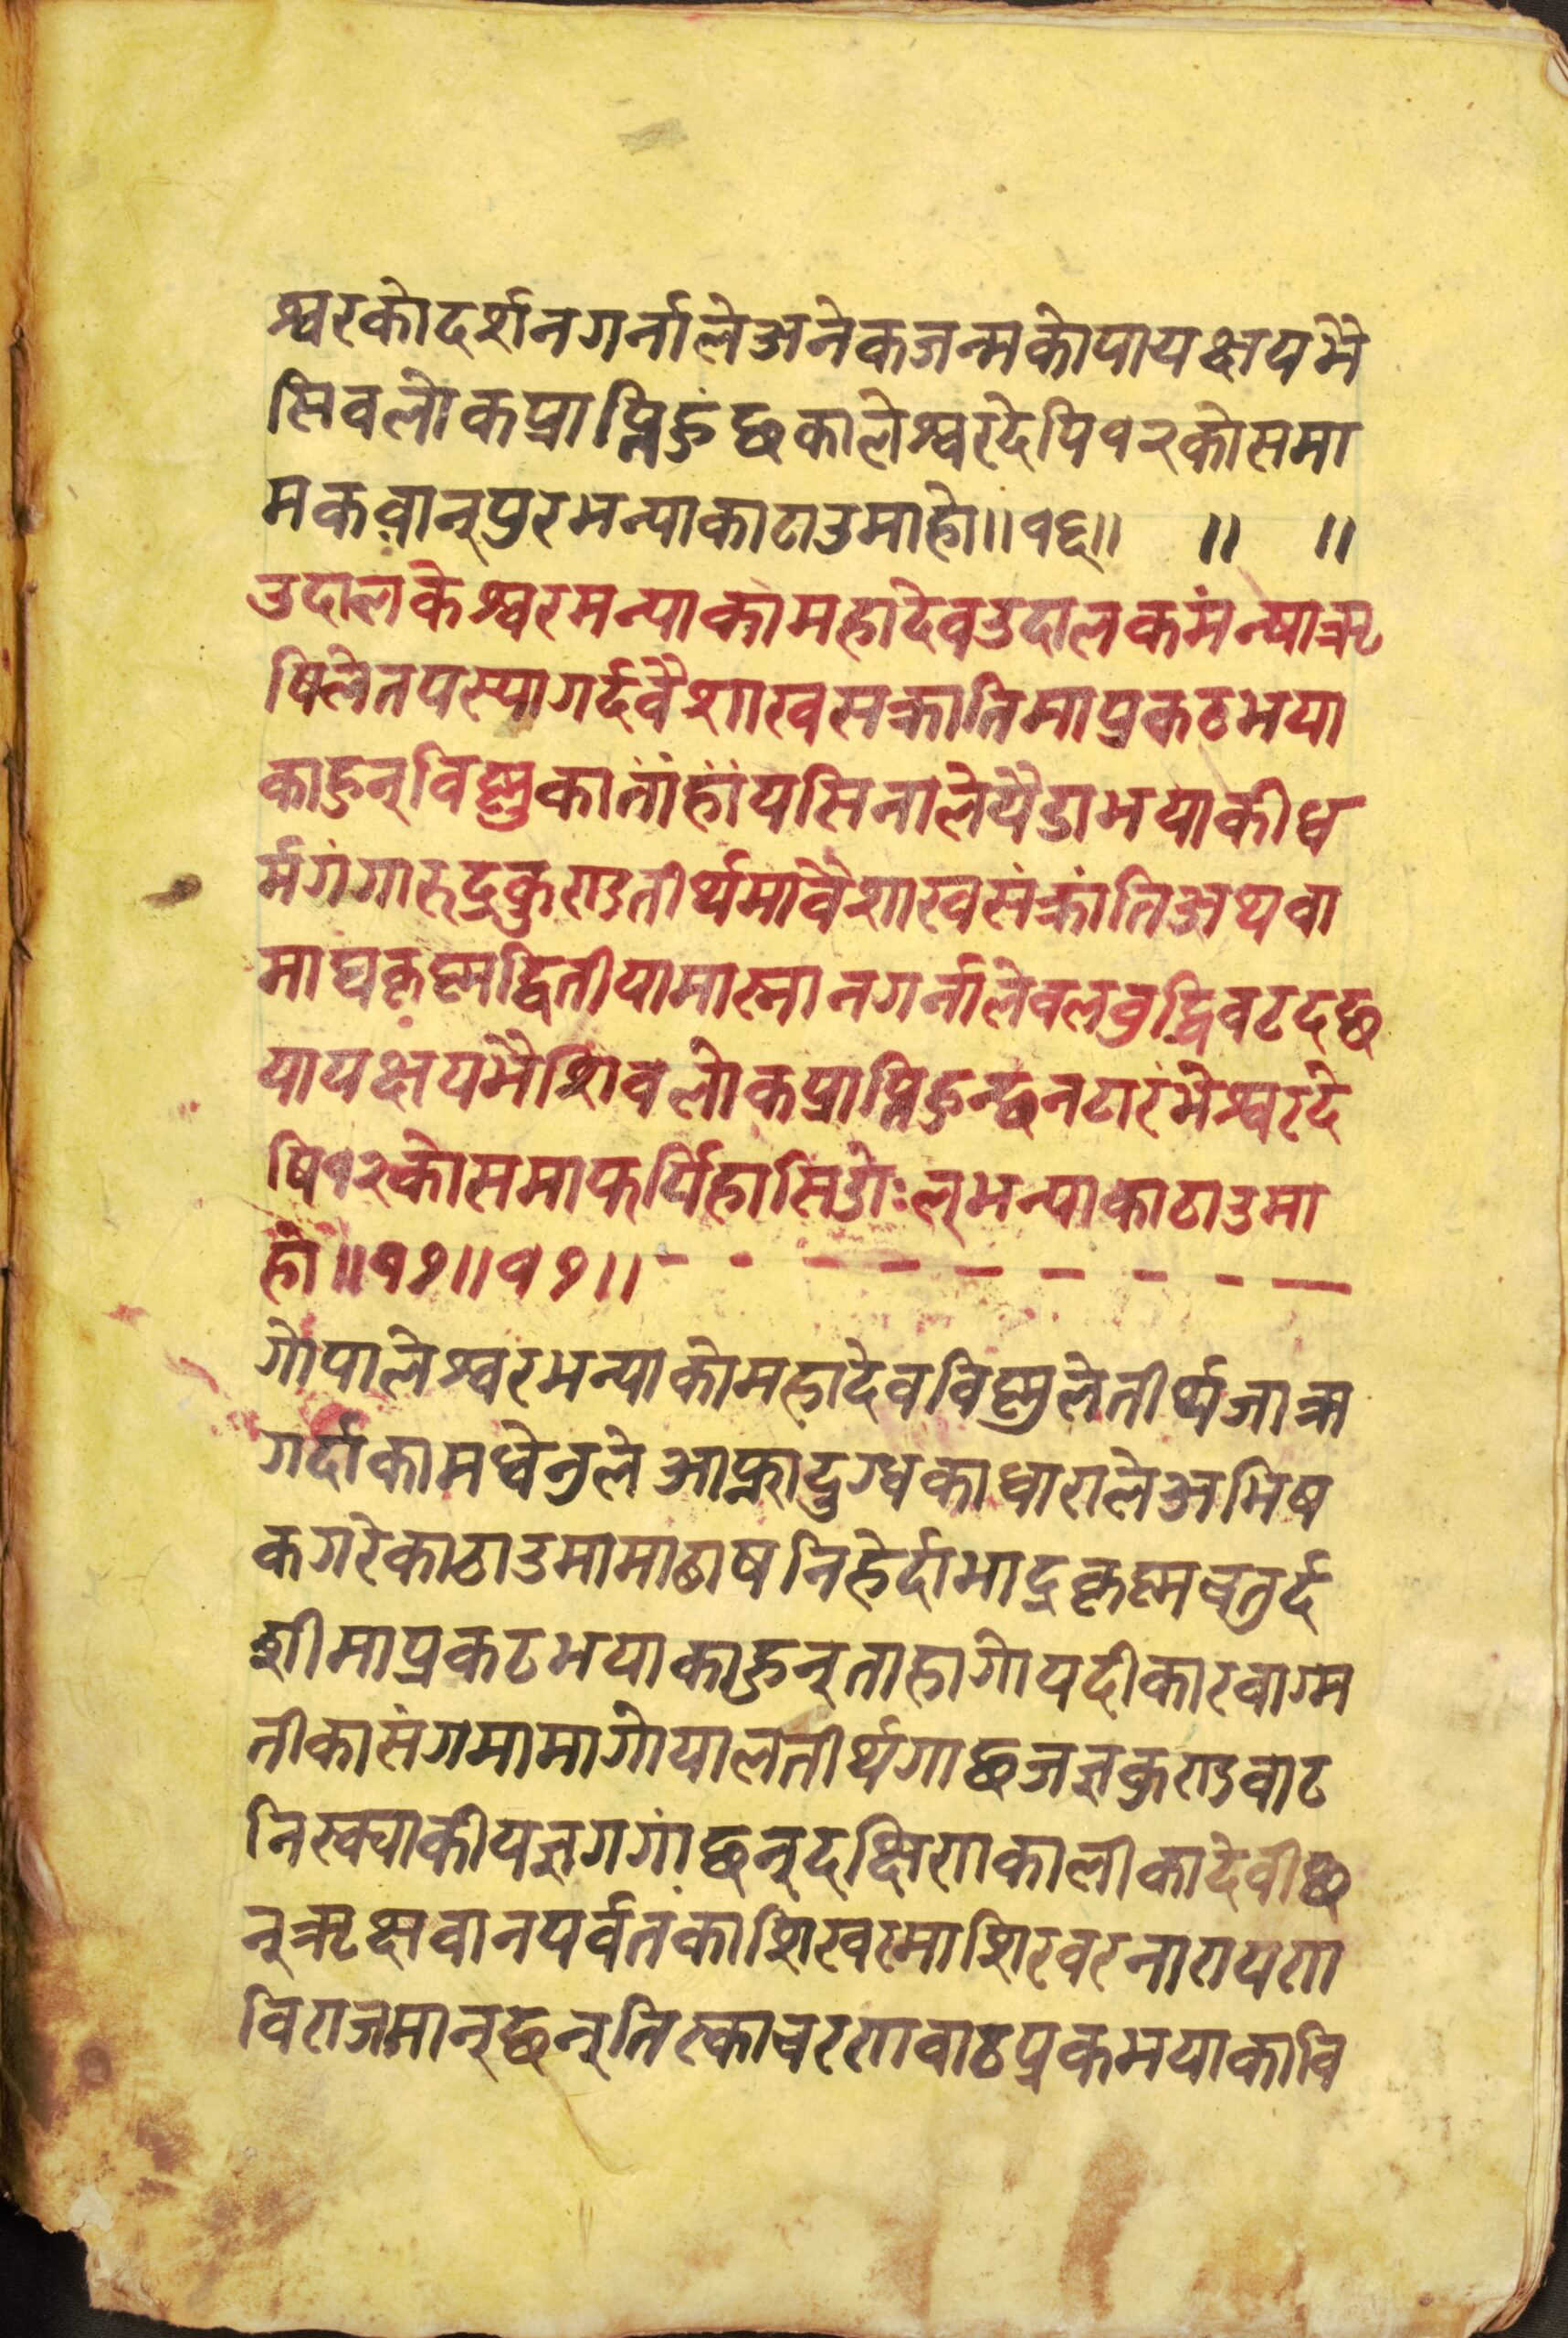 श्वरकोदर्शनगर्नालेअनेकजन्मकोपापक्षयभै
सिवलोकप्राप्तिहुंछकालेश्वरदेषि१२कोसमा
मकवान्पुरभन्याकाठाउमाहो॥१६॥ ॥ ॥
उदालकेश्वरमन्याकामहादेवउदालकमंन्याऋ
षिलेतपस्यागर्दवैशाखसक्रातिमाप्रकठभया
काहुन्विष्णुकातांहांपसिनालेपैडाभयाकीध
र्मगंगारुद्रकुराडतीर्थमावैशाखसंक्रांतिअथवा
माघकृष्णद्वितीयामास्नानगर्नालेवलवुद्धिवटदछ
पापक्षयभैशिवलोकप्राप्तिहुन्छनटारंभेश्वरदे
षि१२कोसमाफर्पिहासिडोःल्भन्याकाठाउमा
हो॥१७॥१७॥- - - - - - - - -
गोपालेश्वरभन्याकोमहादेवविष्णुलेतीर्थजात्रा
गर्दाकामधेनुलेआफ्नादुग्धकाधारालेअभिष
कगरेकाठाउमामाठाषनिहेर्दाभाद्रकृष्णचतुर्द
शीमाप्रकटभयाकाहुन्ताहागोपदीकारवाग्म
तीकासंगमामागोपालतीर्थगाछजज्ञकुराडवाट
निस्क्याकीयज्ञगगांछन्दक्षिणकालीकादेवीछ
न्ऋक्षवानपर्वतकाशिखरमाशिखरनारायण
विराजमान्छन्तिस्काचरणवाठप्रकभयाकावि